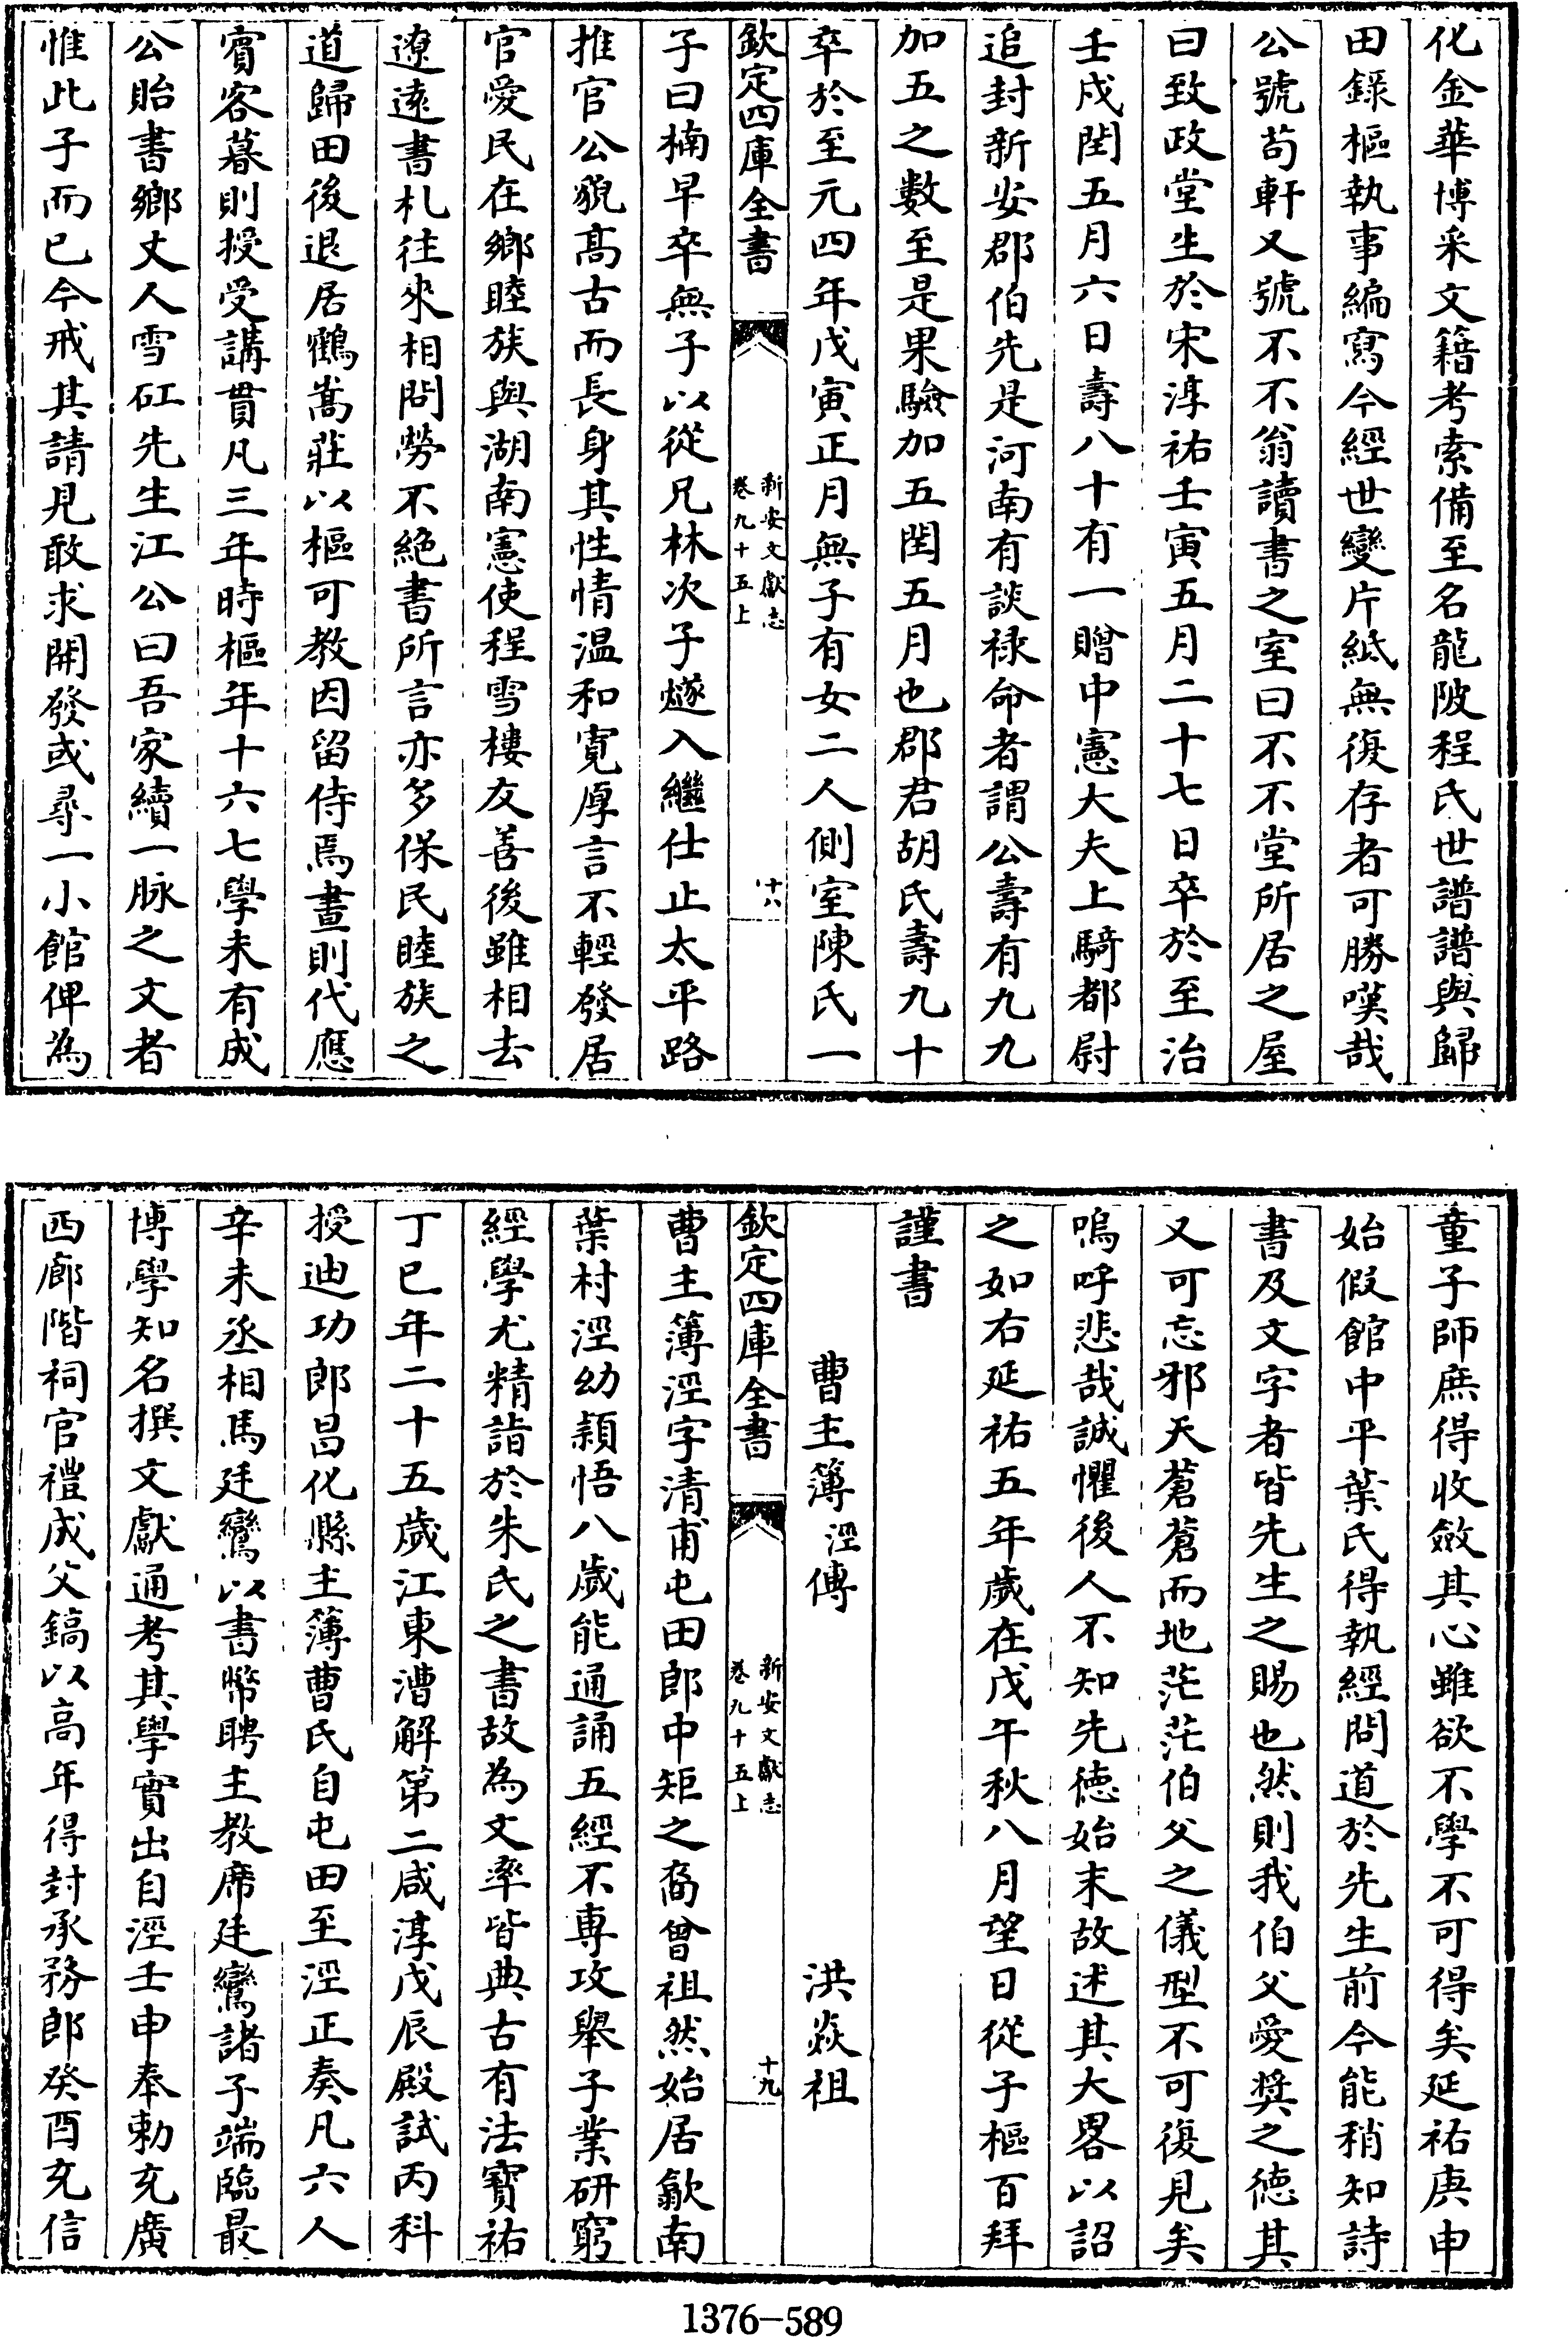 化金華博采文籍考索備至名龍陂程氏世譜譜與歸
田録樞執事編寫今經世變片紙無復存者可勝嘆哉
公號苟軒又號不不翁讀書之室曰不不堂所居之屋
曰致政堂生於宋淳祐壬寅五月二十七日卒於至治
壬戌閏五月六日壽八十有一贈中憲大夫上騎都尉
追封新安郡伯先是河南有談禄命者謂公壽有九九
加五之數至是果驗加五閏五月也郡君胡氏壽九十
卒於至元四年戊寅正月無子有女二人側室陳氏一
欽定四庫全書
新安文獻志
卷九十五上
十八
子曰楠早卒無子以從兄林次子燧入繼仕止太平路
推官公貌高古而長身其性情温和寛厚言不輕發居
官愛民在鄉睦族與湖南憲使程雪樓友善後雖相去
遼逺書札往來相問勞不絶書所言亦多保民睦族之
道歸田後退居鶴嵩莊以樞可教因留侍焉晝則代應
賓客暮則授受講貫凡三年時樞年十六七學未有成
公貽書鄉丈人雪矼先生江公曰吾家續一脉之文者
惟此子而已今戒其請見敢求開發或尋一小館俾為
童子師庶得收斂其心雖欲不學不可得矣延祐庚申
始假館中平葉氏得執經問道於先生前今能稍知詩
書及文字者皆先生之賜也然則我伯父愛奬之德其
又可忘邪天蒼蒼而地茫茫伯父之儀型不可復見矣
嗚呼悲哉誠懼後人不知先徳始末故述其大畧以詔
之如右延祐五年歲在戊午秋八月望日從子樞百拜
謹書
曹主簿涇傳
洪焱祖
欽定四庫全書
新安文獻志
卷九十五上
十九
曹主簿涇字清甫屯田郎中矩之裔曾祖然始居歙南
葉村涇幼穎悟八歲能通誦五經不專攻舉子業研窮
經學尤精詣於朱氏之書故為文率皆典古有法寶祐
丁巳年二十五歲江東漕解第二咸淳戊辰殿試丙科
授迪功郎昌化縣主簿曹氏自屯田至涇正奏凡六人
辛未丞相馬廷鸞以書幣聘主教席廷鸞諸子端臨最
博學知名撰文獻通考其學實出自涇壬申奉勅充廣
西廊階祠官禮成父鎬以高年得封承務郎癸酉充信
1376-589